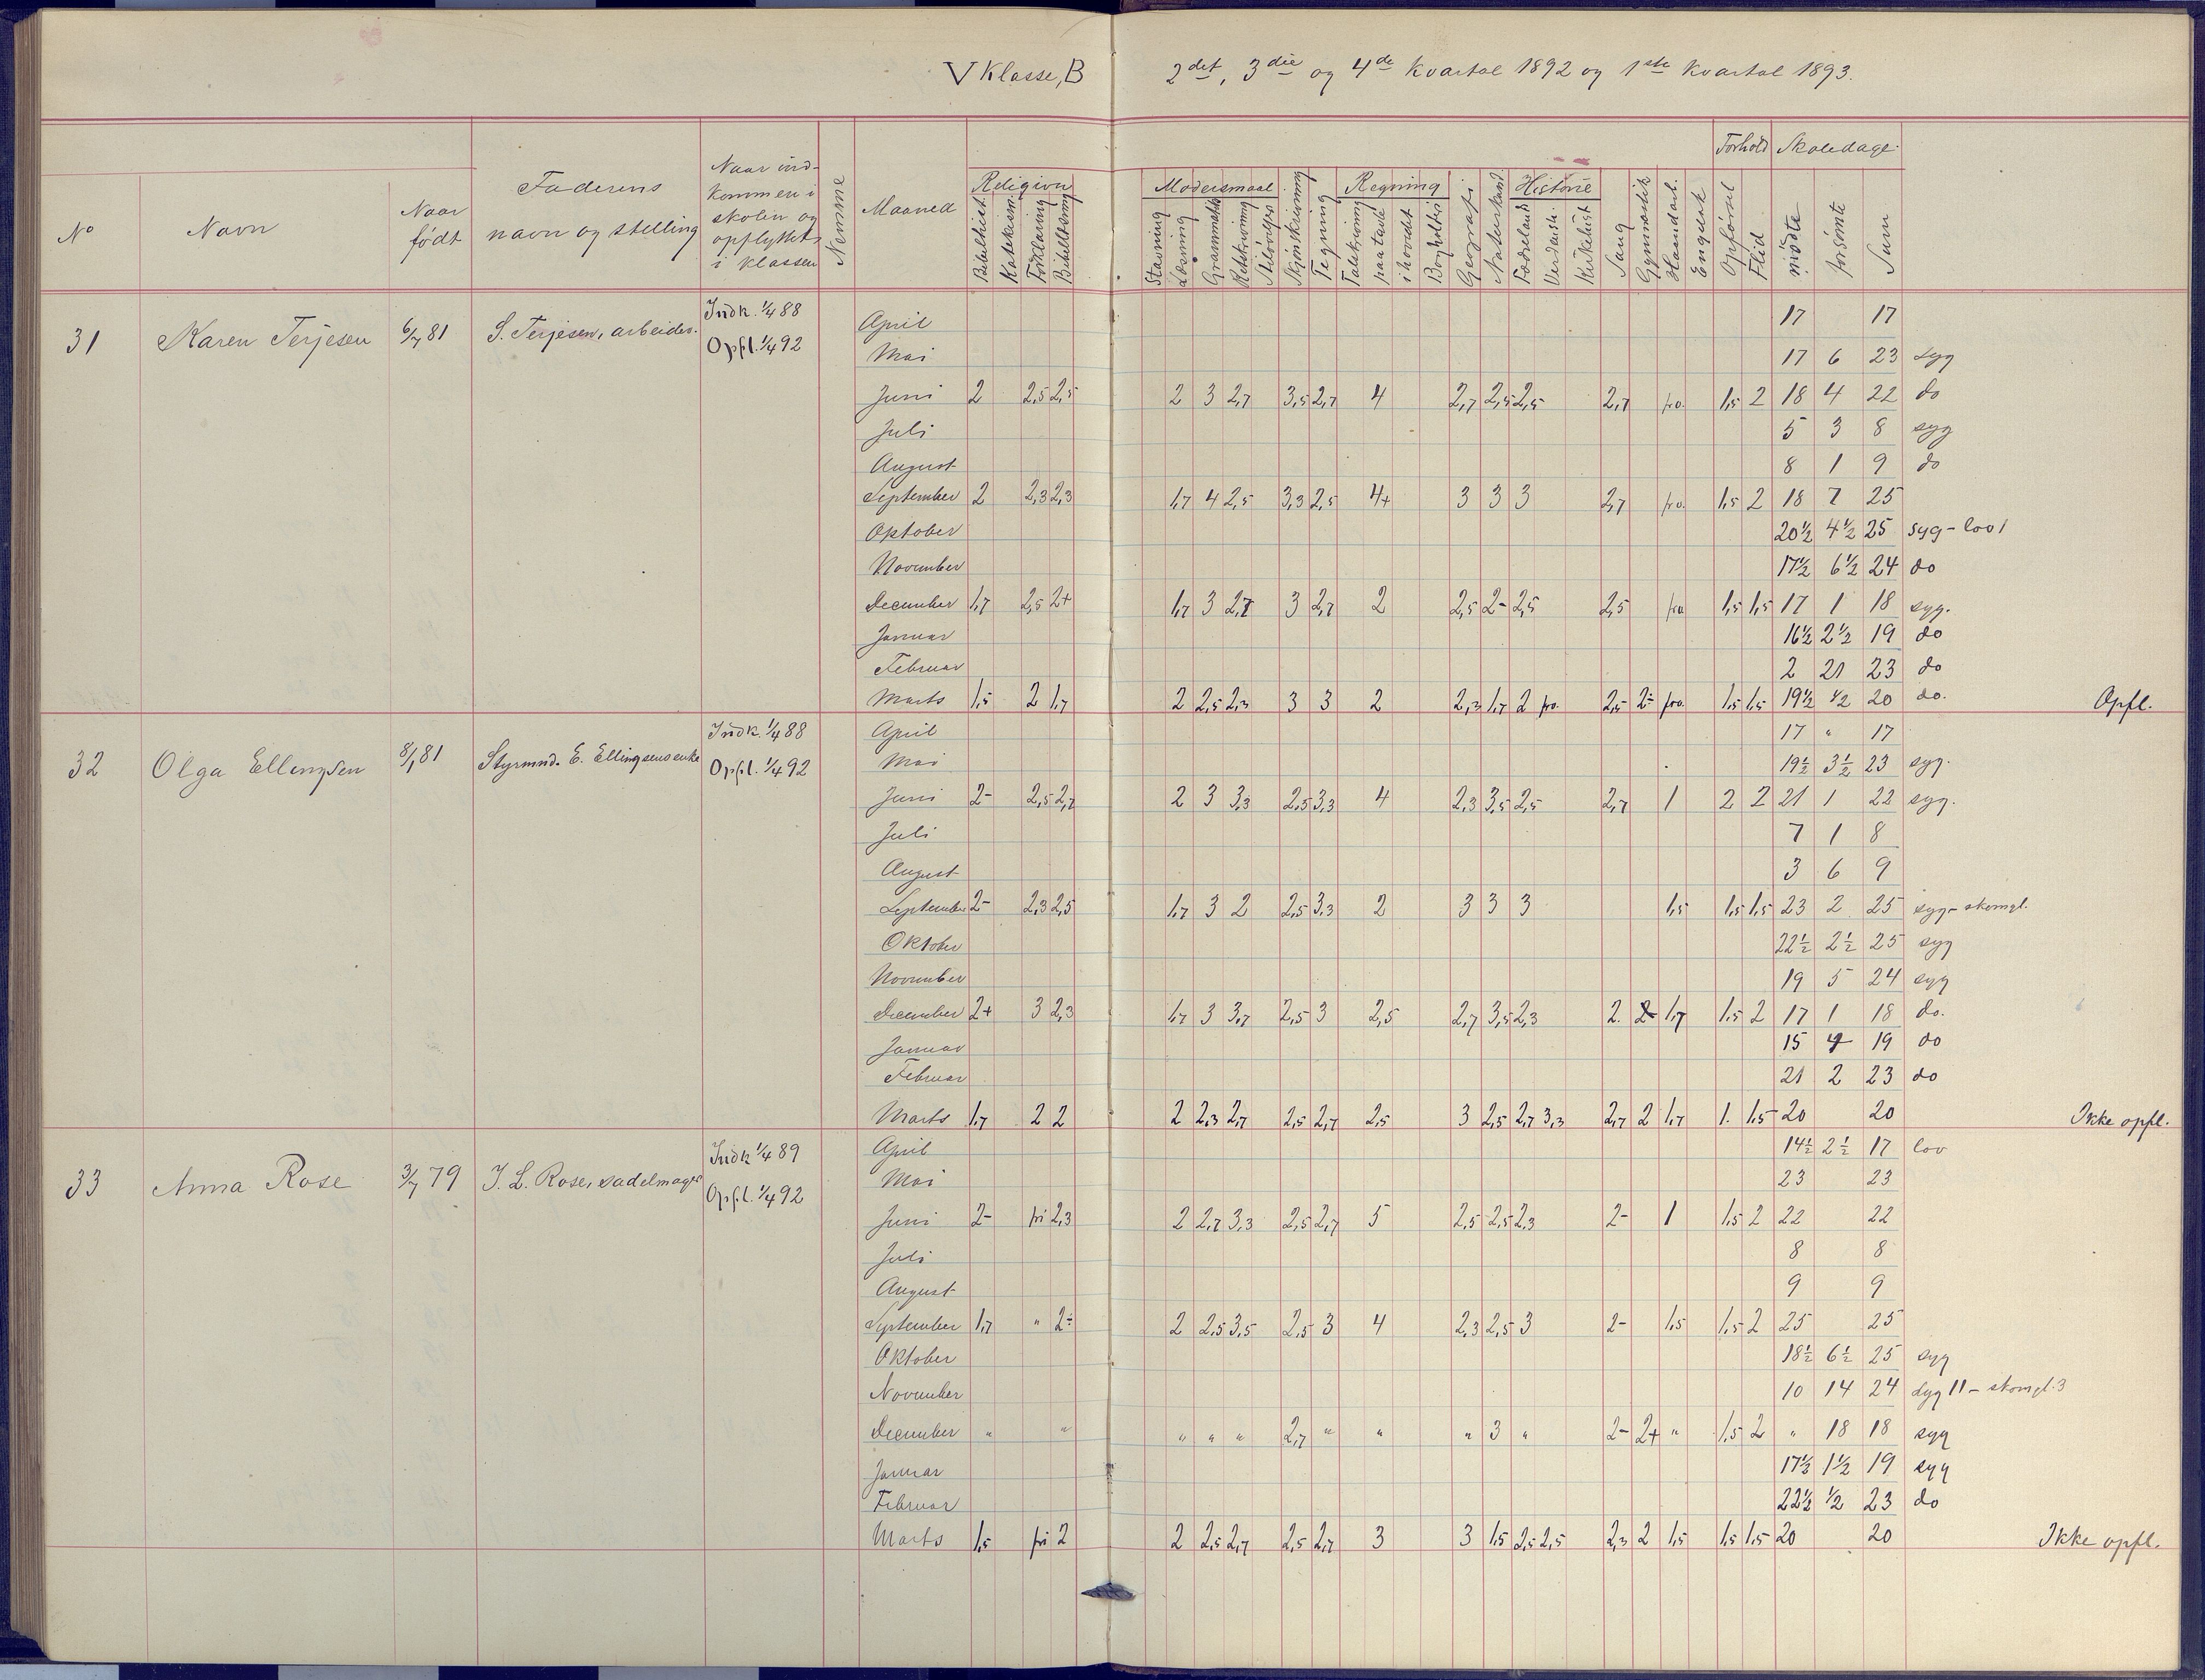 V Klasse, B 2det, 3die og 4de Kvartal 1892 og 1ste Kvartal 1893.
Forhold Skoledage
No Navn Naar født Faderens navn og stilling Naar indkommen i skolen og opflyttet i klassen Nemme Maaned Religion Modersmaal Regning Historie
Bibelhist. Katekism. Forklaring Bibellæsning Stavning Læsning Grammatik Retskrivning Stiløvelser Skjønskrivning Tegning Talskrivning paa tavle i hovedet Bogholderi Geografi Naturkund. Fædreland Verdensh. Kirkehist. Sang Gymnastik Haandarb. Engelsk Opførsel Flid mødte forsømte Sum
31 Karen Terjesen 6/7 81 S. Terjesen, arbeider. Indk. 1/4 88 April 17 17
Opfl. 1/4 92 Mai 17 6 23 syg
Juni 2 2,5 2,5 2 3 2,7 3,5 2,7 4 2,7 2,5 2,5 2,7 fra. 1,5 2 18 4 22 do
Juli 5 3 8 syg
August 8 1 9 do
September 2 2,3 2,3 1,7 4 2,5 3,3 2,5 4+ 3 3 3 2,7 fra. 1,5 2 18 7 25
Oktober 20 1/2 4 1/2 25 syg - lov 1
November 17 1/2 6 1/2 24 do
December 1,7 2,5 2+ 1,7 3 2,7 3 2,7 2 2,5 2- 2,5 2,5 fra 1,5 1,5 17 1 18 syg.
Januar 16 1/2 2 1/2 19 do
Februar 2 21 23 do
Marts 1,5 2 1,7 2 2,5 2,3 3 3 2 2,3 1,7 2 fra. 2,5 2- fra. 1,5 1,5 19 1/2 1/2 20 do. Opfl.
32 Olga Ellingsen 8/1 81 Styrmnd. E. Ellingsens enke Indk. 1/4 88 April 17 " 17
Opfl. 1/4 92 Mai 19 1/2 3 1/2 23 syg.
Juni 2- 2,5 2,7 2 3 3,3 2,5 3,3 4 2,3 3,5 2,5 2,7 1 2 2 21 1 22 syg.
Juli 7 1 8
August 3 6 9
September 2- 2,3 2,5 1,7 3 2 2,5 3,3 2 3 3 3 1,5 1,5 1,5 23 2 25 syg - skomgl.
Oktober 22 1/2 2 1/2 25 syg
November 19 5 24 syg
December 2+ 3 2,3 1,7 3 3,7 2,5 3 2,5 2,7 3,5 2,3 2. 2- 1,7 1,5 2 17 1 18 do.
Januar 15 4 19 do
Februar 21 2 23 do
Marts 1,7 2 2 2 2,3 2,7 2,5 2,7 2,5 3 2,5 2,7 3,3 2,7 2 1,7 1. 1,5 20 20 Ikke opfl.
33 Anna Rose 3/7 79 J. L. Rose, sadelmager Indk 1/4 89 April 14 1/2 2 1/2 17 lov
Opfl. 1/4 92 Mai 23 23
Juni 2- fri 2,3 2 2,7 3,3 2,5 2,7 5 2,5 2,5 2,3 2- 1 1,5 2 22 22
Juli 8 8
August 9 9
September 1,7 " 2- 2 2,5 3,5 2,5 3 4 2,3 2,5 3 2- 1,5 1,5 2 25 25
Oktober 18 1/2 6 1/2 25 syg
November 10 14 24 syg 11 - skomgl. 3
December " " " " " 2,7 " " " 3 " 2- 2+ " 1,5 2 " 18 18 syg
Januar 17 1/2 1 1/2 19 syg
Februar 22 1/2 1/2 23 do
Marts 1,5 fri 2 2 2,5 2,7 2,5 2,7 3 3 1,5 2,5 2,5 2,3 2 1,5 1,5 1,5 20 20 Ikke opfl.